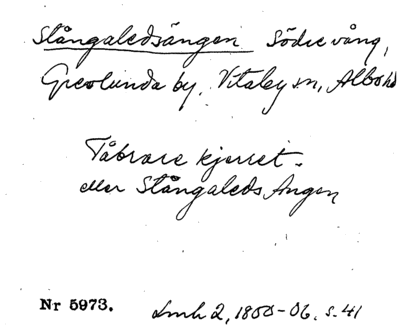 Stångaledsängen Södre vång,
Grevlunda by, Vitaby sn, Albo hd
Tåbrare kjerret.
eller Stångaleds Ängen
Nr 5973. Lmh 2, 1800-06, s. 41